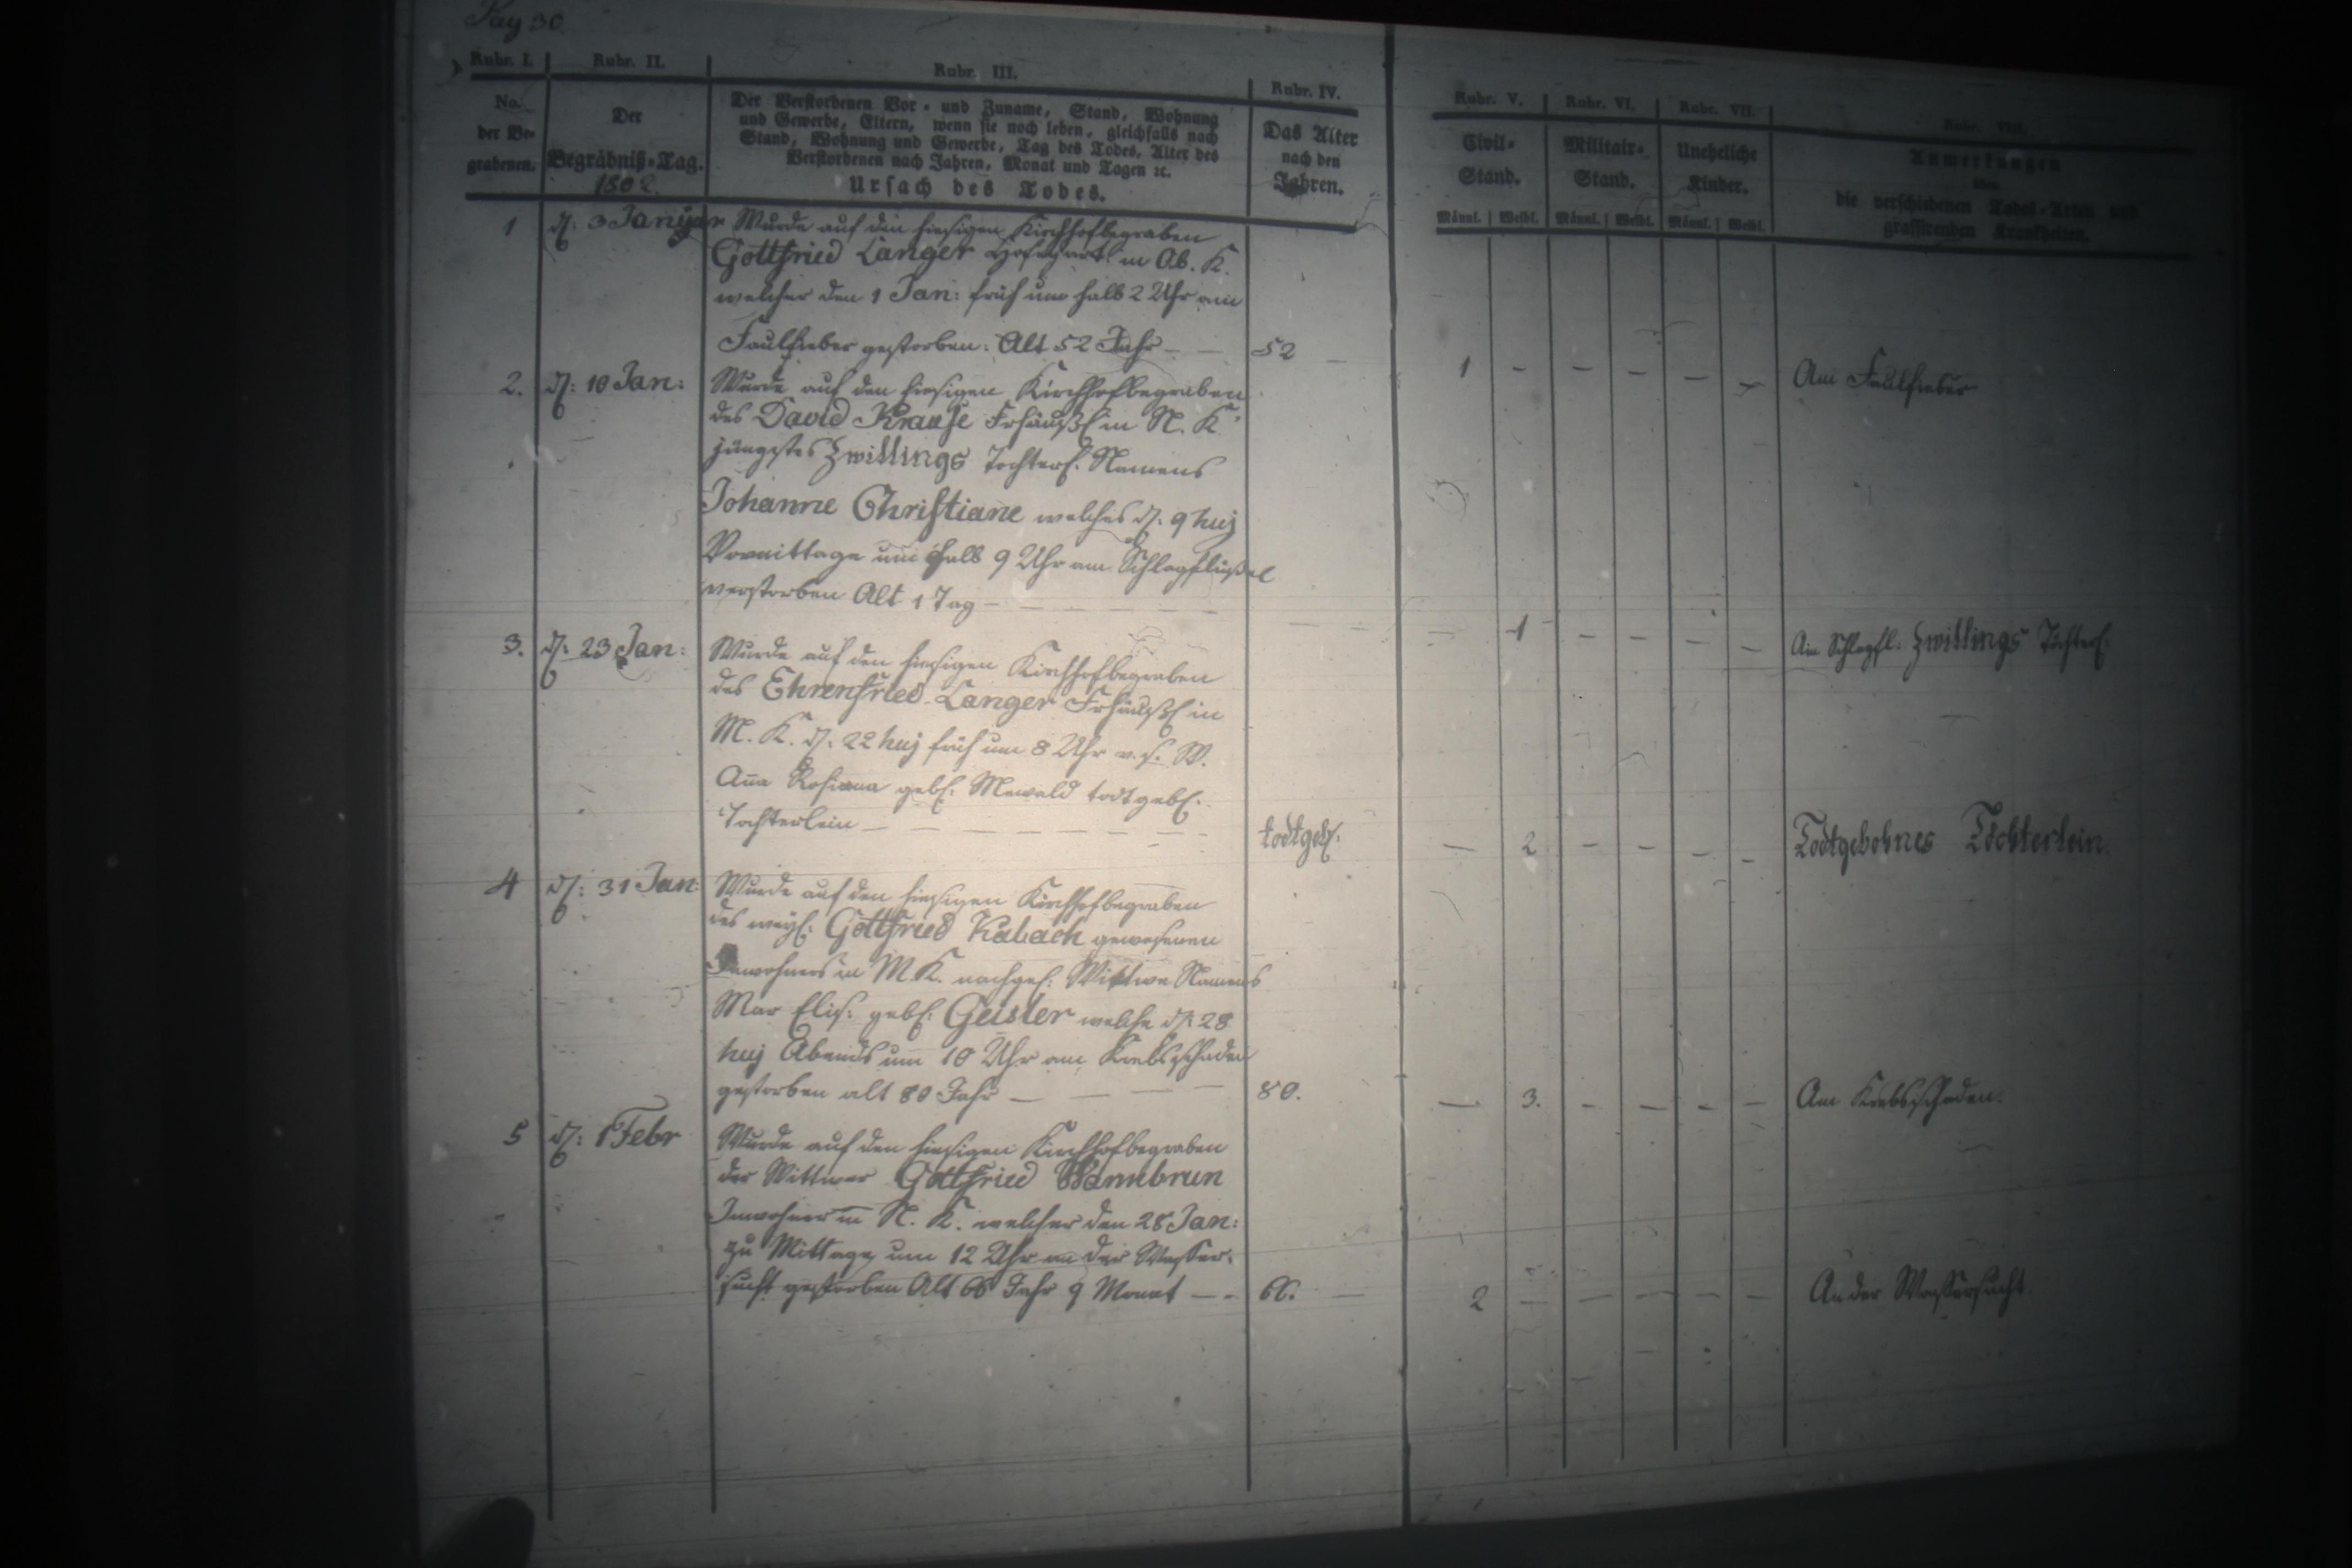 Pag 30
Rubr. I. Rubr. II. Rubr. III. Rubr. IV. Rubr. V. Rubr. VI. Rubr. VII. Rubr. VIII.
No. der Be-grabenen.
Der Begräbniß-Tag.
1802.
Der Verstorbenen Vor- und Zuname, Stand, Wohnung
und Gewerbe, Eltern, wenn sie noch leben, gleichfalls nach
Stand, Wohnung und Gewerbe, Tag des Todes, Alter des
Verstorbenen nach Jahren, Monat und Tagen ꝛc.
Ursach des Todes.
Das Alter
nach den
Jahren.
Civil-
Stand.
Militair-
Stand.
Uneheliche
Kinder.
Männl. Weibl. Männl. Weibl. Männl. Weibl.
Anmerkungen
über
die verschiedenen Todes-Arten und
grassirenden Krankheiten.
1 d. 3 Januar Wurde auf den hiesigen Kirchhof begraben
Gottfried Langer Hofegärtl. in Ob. K.
welcher den 1 Jan: früh um halb 2 Uhr am
Faulfieber gestorben: Alt 52 Jahr — — 52 — 1 - - - - - Am Faulfieber
2. d: 10 Jan: Wurde auf den hiesigen Kirchhof begraben
des David Krause Frhäußl in N. K.
jüngstes Zwillings Töchterl. Namens
Johanne Christiane welches d. 9 huj
Vormittags um halb 9 Uhr am Schlagflüßel
verstorben Alt 1 Tag — — — — — — 1 - - - - Am Schlagfl. Zwillings Töchterl.
3. d. 23 Jan: Wurde auf den hiesigen Kirchhof begraben
des Ehrenfried Langer Frhäußl in
M. K. d. 22 huj früh um 8 Uhr v. s. W.
Aña Rosina geb. Mewald todtgeb.
Töchterlein — — — — — todtgeb. — 2 - - - - Todtgebohnes Töchterlein.
4 d: 31 Jan: Wurde auf den hiesigen Kirchhof begraben
des weyl. Gottfried Kabach gewesenen
Inwohners in M. K. nachgel: Wittwe Namens
Mar Elis. geb. Geisler welche d. 28
huj Abends um 10 Uhr am Krebsschaden
gestorben alt 80 Jahr — — — — 80. — 3. - - - - Am Krebsschaden.
5 d: 1 Febr Wurde auf den hiesigen Kirchhof begraben
der Wittwer Gottfried Wannbrun
Inwohner in N. K. welcher den 28 Jan:
zu Mittage um 12 Uhr an der Wasser-
sucht gestorben Alt 66 Jahr 9 Monat — - 66. — 2 - - - - - An der Wassersucht.